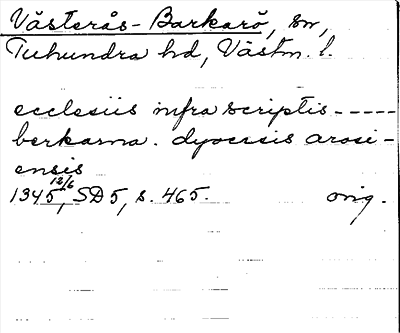 Västerås-Barkarö, sn,
Tuhundra hd, Västm. l.
ecclesiis infra scriptis-----
berkarna. dyocesis arosi-
ensis
1345 12/6, SD 5, s. 465. orig.